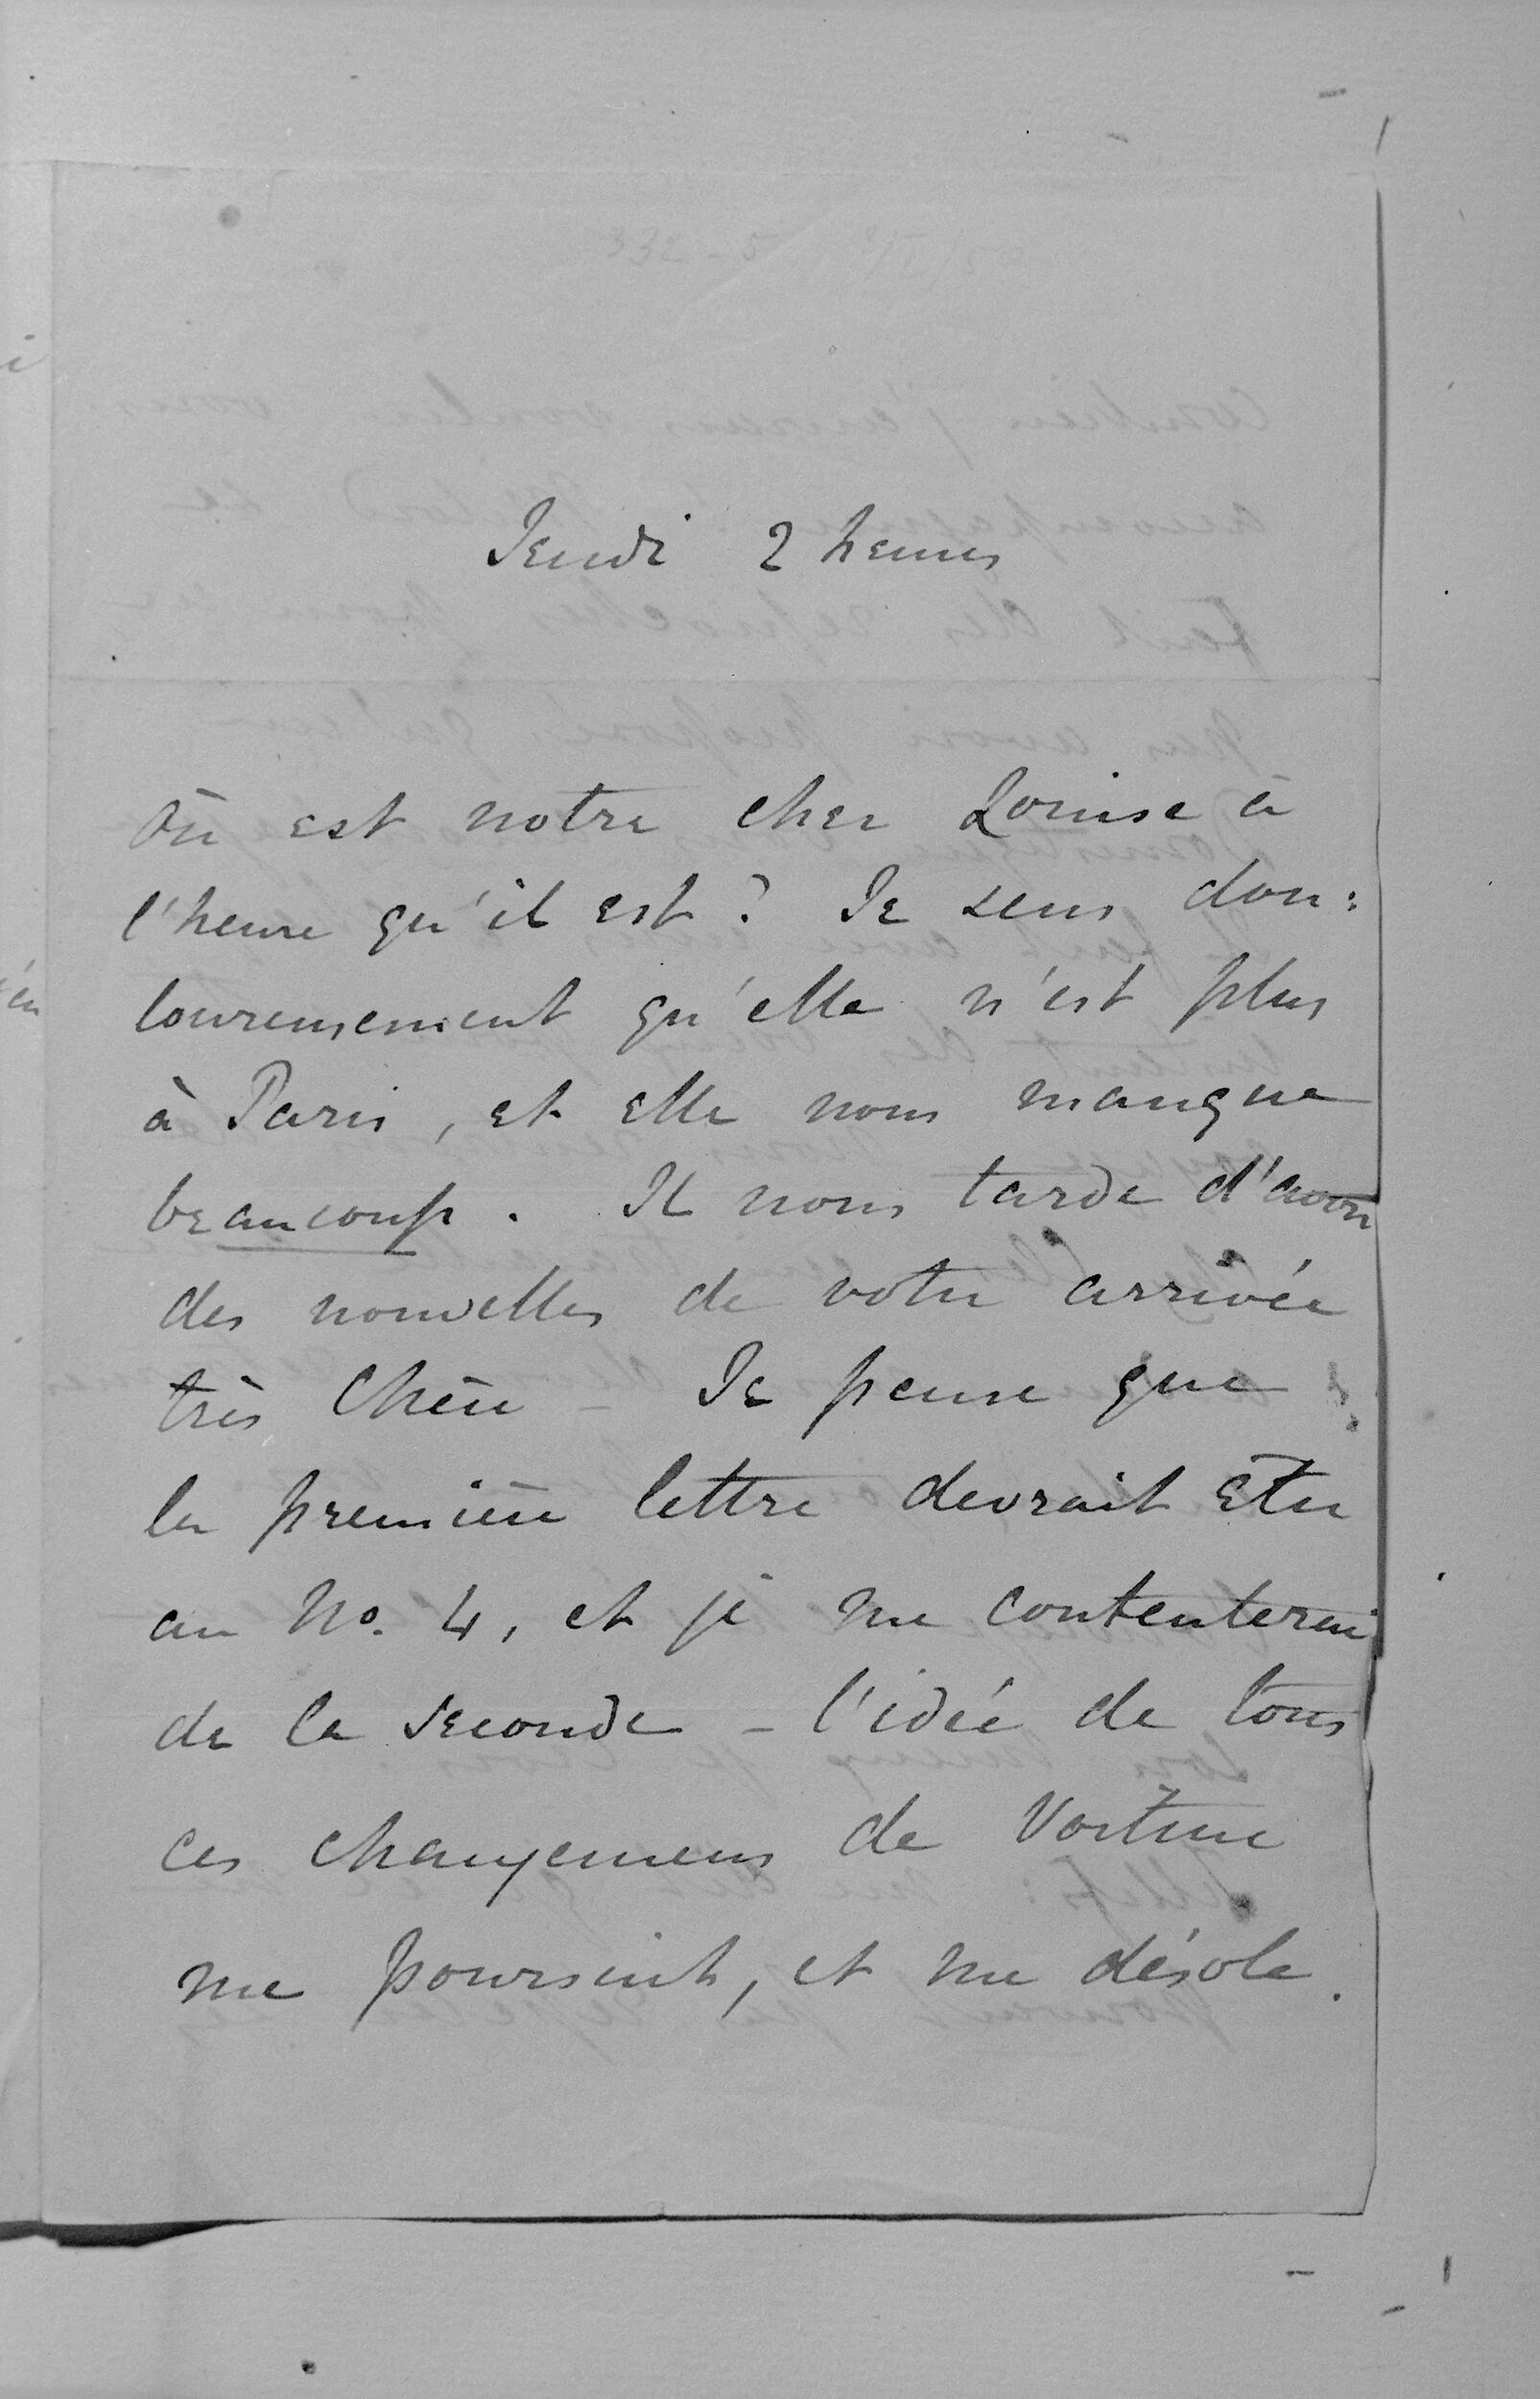 Jeudi 2 heures
Où est notre cher Louise à
l'heure qu'il est? Je sens dou:
loureusement qu'elle n'est plus
à Paris, et elle nous manque
beaucoup. Il nous tarde d'avoir
des nouvelles de votre arrivée
très chère – Je pense que
la première lettre devrait être
au No. 4, et je me contenterai
de la seconde – l'idée de tous
ces changemens de voiture
me poursuit, et me désole.